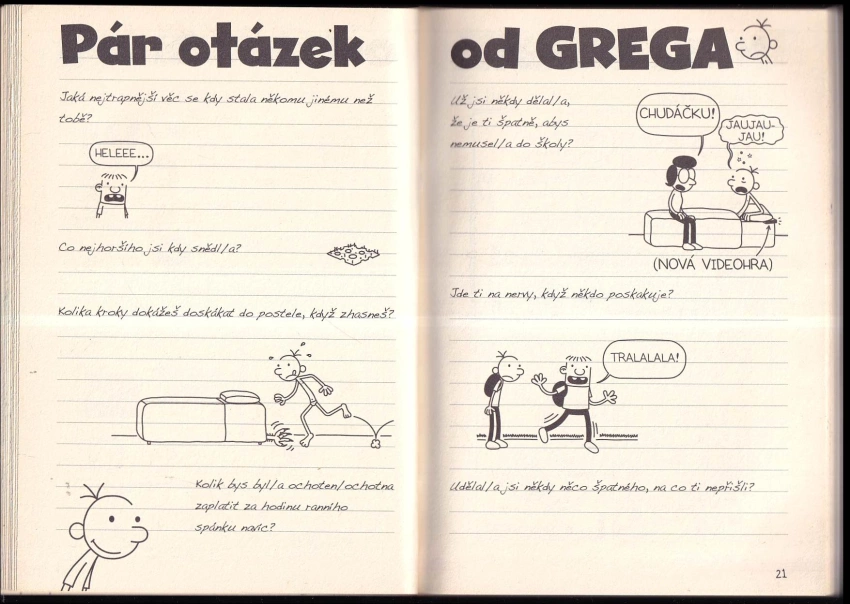 Pár otázek od GREGA
Jaká nejtrapnější věc se kdy stala někomu jinému než
tobě?
HELEEE...
Co nejhoršího jsi kdy snědl/a?
Kolika kroky dokážeš doskákat do postele, když zhasneš?
Kolik bys byl/a ochoten/ochotna
zaplatit za hodinu ranního
spánku navíc?
Už jsi někdy dělal/a,
že je ti špatně, abys
nemusel/a do školy?
CHUDÁČKU!
JAUJAU-
JAU!
(NOVÁ VIDEOHRA)
Jde ti na nervy, když někdo poskakuje?
TRALALALA!
Udělal/a jsi někdy něco špatného, na co ti nepřišli?
21